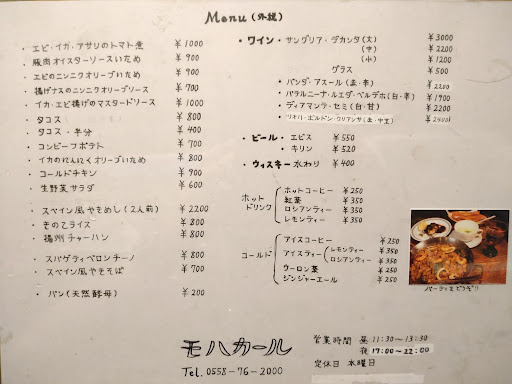 Menu (外税)
・エビ・イカ・アサリのトマト煮 ¥1000
・豚肉オイスターソースいため ¥900
・エビのニンニクオリーブいため ¥900
・揚げナスのニンニクオリーブソース ¥700
・イカ・エビ揚げのマスタードソース ¥1000
・タコス ¥800
・タコス・半分 ¥400
・コンビーフポテト ¥700
・イカのにんにくオリーブいため ¥800
・コールドチキン ¥900
・生野菜サラダ ¥600
・スペイン風やきめし(2人前) ¥2200
・きのこライス ¥800
・揚州チャーハン ¥800
・スパゲティペロンチーノ ¥800
・スペイン風やきそば ¥700
・パン(天然酵母) ¥200
・ワイン・サングリア・デカンタ(大) ¥3000
(中) ¥2200
(小) ¥1200
グラス ¥500
・バンダ・アスール(赤・辛) ¥2200
・パラルニーナ・ルエダ・ベルデホ(白・辛) ¥1900
・ディアマンテ・セミ(白・甘) ¥2200
・ビール・エビス ¥550
・キリン ¥520
・ウィスキー水わり ¥400
ホットドリンク
ホットコーヒー ¥250
紅茶 ¥350
ロシアンティー ¥350
レモンティー ¥350
コールド
アイスコーヒー ¥250
アイスティー レモンティー ¥350
ロシアンティー ¥350
ウーロン茶 ¥250
ジンジャーエール ¥250
パーティをどうぞ!!
モハカール
Tel. 0558-76-2000
営業時間 昼 11:30~13:30
夜 17:00~22:00
定休日 水曜日